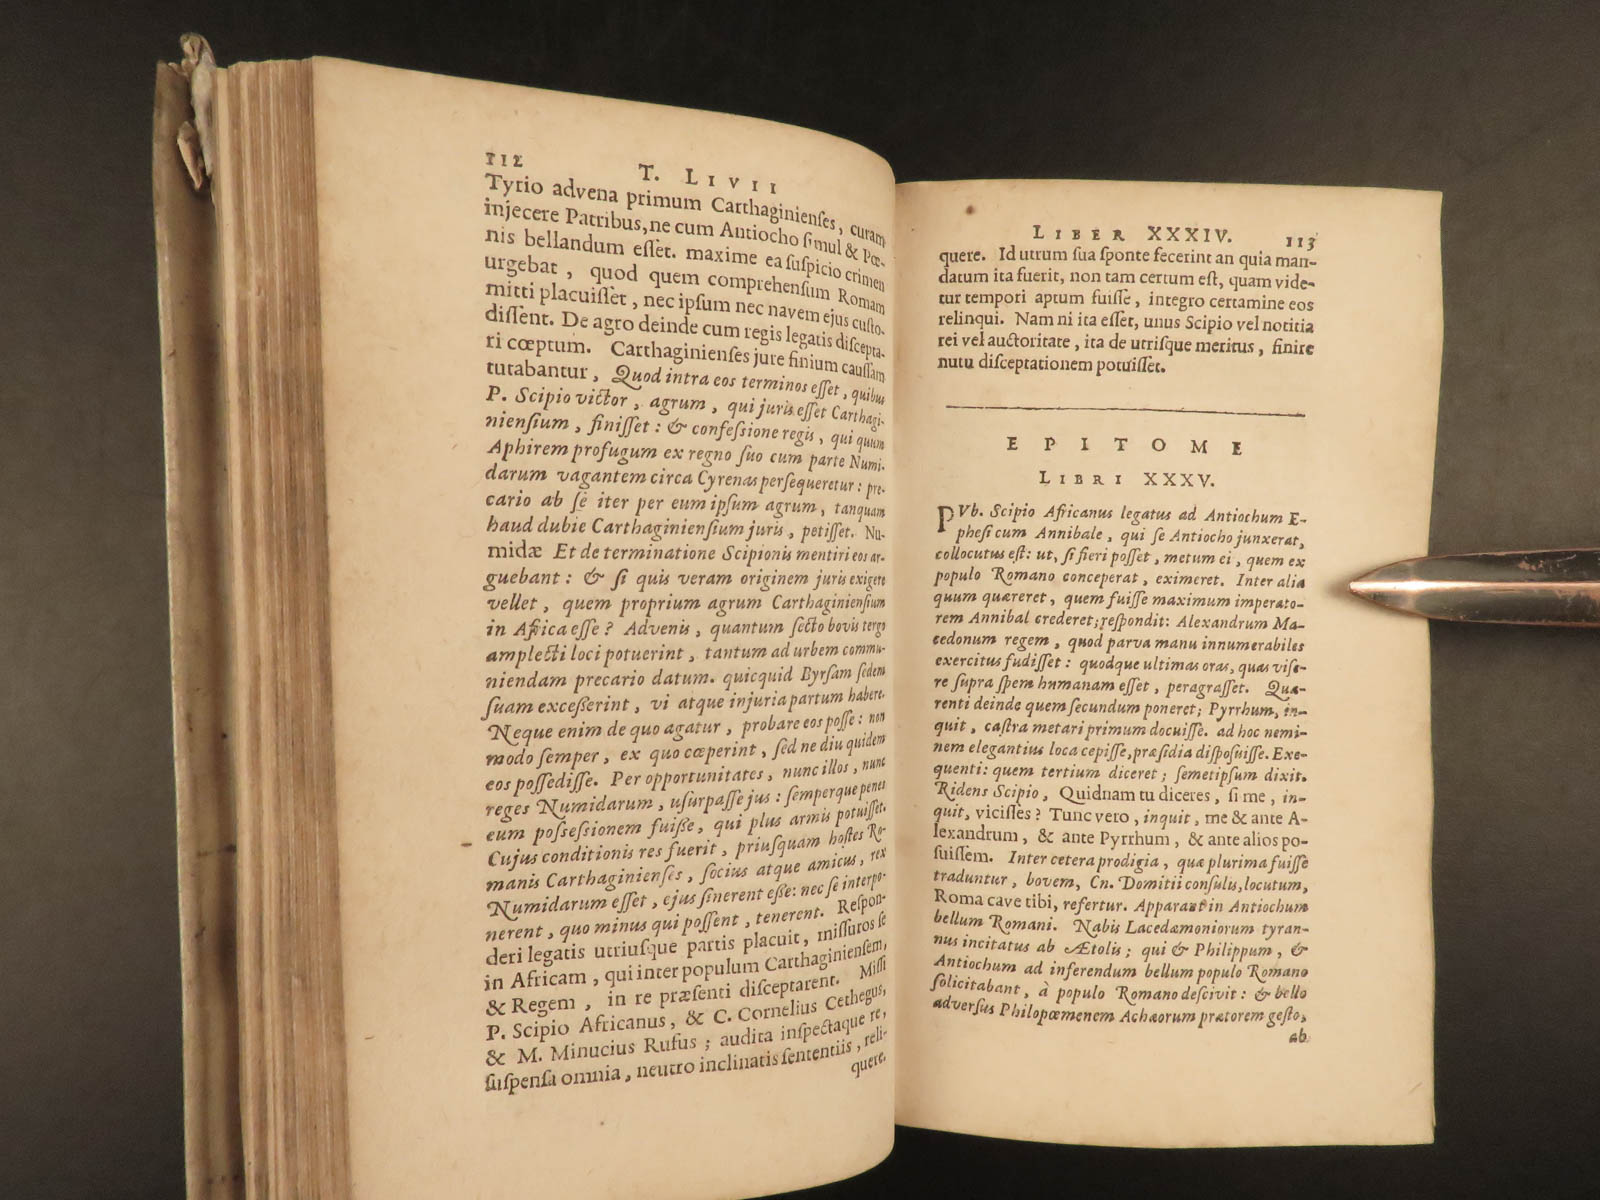 112
T. LIVII
Tyrio advena primum Carthaginienſes, curam
injecere Patribus, ne cum Antiocho ſimul & Pœ-
nis bellandum eſſet. maxime ea ſuſpicio crimen
urgebat, quod quem comprehenſum Romam
mitti placuiſſet, nec ipſum nec navem ejus cuſto-
diſſent. De agro deinde cum regis legatis diſcepta-
ri cœptum. Carthaginienſes jure finium cauſſam
tutabantur, Quod intra eos terminos eſſet, quibus
P. Scipio victor, agrum, qui juris eſſet Carthagi-
nienſium, finiſſet: & confeſsione regis, qui quum
Aphirem profugum ex regno ſuo cum parte Numi-
darum vagantem circa Cyrenas perſequeretur: pre-
cario ab ſe iter per eum ipſum agrum, tanquam
haud dubie Carthaginienſium juris, petiſſet. Nu-
midæ Et de terminatione Scipionis mentiri eos ar-
guebant: & ſi quis veram originem juris exigere
vellet, quem proprium agrum Carthaginienſium
in Africa eſſe? Advenis, quantum ſecto bovis tergo
amplecti loci potuerint, tantum ad urbem commu-
niendam precario datum. quicquid Byrſam ſedem
ſuam exceſſerint, vi atque injuria partum habere.
Neque enim de quo agatur, probare eos poſſe: non
modo ſemper, ex quo cœperint, ſed ne diu quidem
eos poſſediſſe. Per opportunitates, nunc illos, nunc
reges Numidarum, uſurpaſſe jus: ſemperque penes
eum poſſeſsionem fuiſſe, qui plus armis potuiſſet.
Cujus conditionis res fuerit, priuſquam hoſtes Ro-
manis Carthaginienſes, ſocius atque amicus, rex
Numidarum eſſet, ejus ſinerent eſſe: nec ſe interpo-
nerent, quo minus qui poſſent, tenerent. Reſpon-
deri legatis utriuſque partis placuit, miſſuros ſe
in Africam, qui inter populum Carthaginienſem,
& Regem, in re præſenti diſceptarent. Miſſi
P. Scipio Africanus, & C. Cornelius Cethegus,
& M. Minucius Rufus; audita inſpectaque re,
ſuſpenſa omnia, neutro inclinatis ſententiis, reli-
quere.
LIBER XXXIV.
113
quere. Id utrum ſua ſponte fecerint an quia man-
datum ita fuerit, non tam certum eſt, quam vide-
tur tempori aptum fuiſſe, integro certamine eos
relinqui. Nam ni ita eſſet, unus Scipio vel notitia
rei vel auctoritate, ita de utriſque meritus, finire
nutu diſceptationem potuiſſet.
EPITOME
LIBRI XXXV.
PVb. Scipio Africanus legatus ad Antiochum E-
pheſi cum Annibale, qui ſe Antiocho junxerat,
collocutus eſt: ut, ſi fieri poſſet, metum ei, quem ex
populo Romano conceperat, eximeret. Inter alia
quum quæreret, quem fuiſſe maximum imperato-
rem Annibal crederet; reſpondit: Alexandrum Ma-
cedonum regem, quod parva manu innumerabiles
exercitus fudiſſet: quodque ultimas oras, quas viſe-
re ſupra ſpem humanam eſſet, peragraſſet. Quæ-
renti deinde quem ſecundum poneret; Pyrrhum, in-
quit, caſtra metari primum docuiſſe. ad hoc nemi-
nem elegantius loca cepiſſe, præſidia diſpoſuiſſe. Exe-
quenti: quem tertium diceret; ſemetipſum dixit.
Ridens Scipio, Quidnam tu diceres, ſi me, in-
quit, viciſſes? Tunc vero, inquit, me & ante A-
lexandrum, & ante Pyrrhum, & ante alios po-
ſuiſſem. Inter cetera prodigia, quæ plurima fuiſſe
traduntur, bovem, Cn. Domitii conſulis, locutum,
Roma cave tibi, refertur. Apparant in Antiochum
bellum Romani. Nabis Lacedæmoniorum tyran-
nus incitatus ab Ætolis; qui & Philippum, &
Antiochum ad inferendum bellum populo Romano
ſolicitabant, à populo Romano deſcivit: & bello
adverſus Philopœmenem Achæorum prætorem geſto,
ab